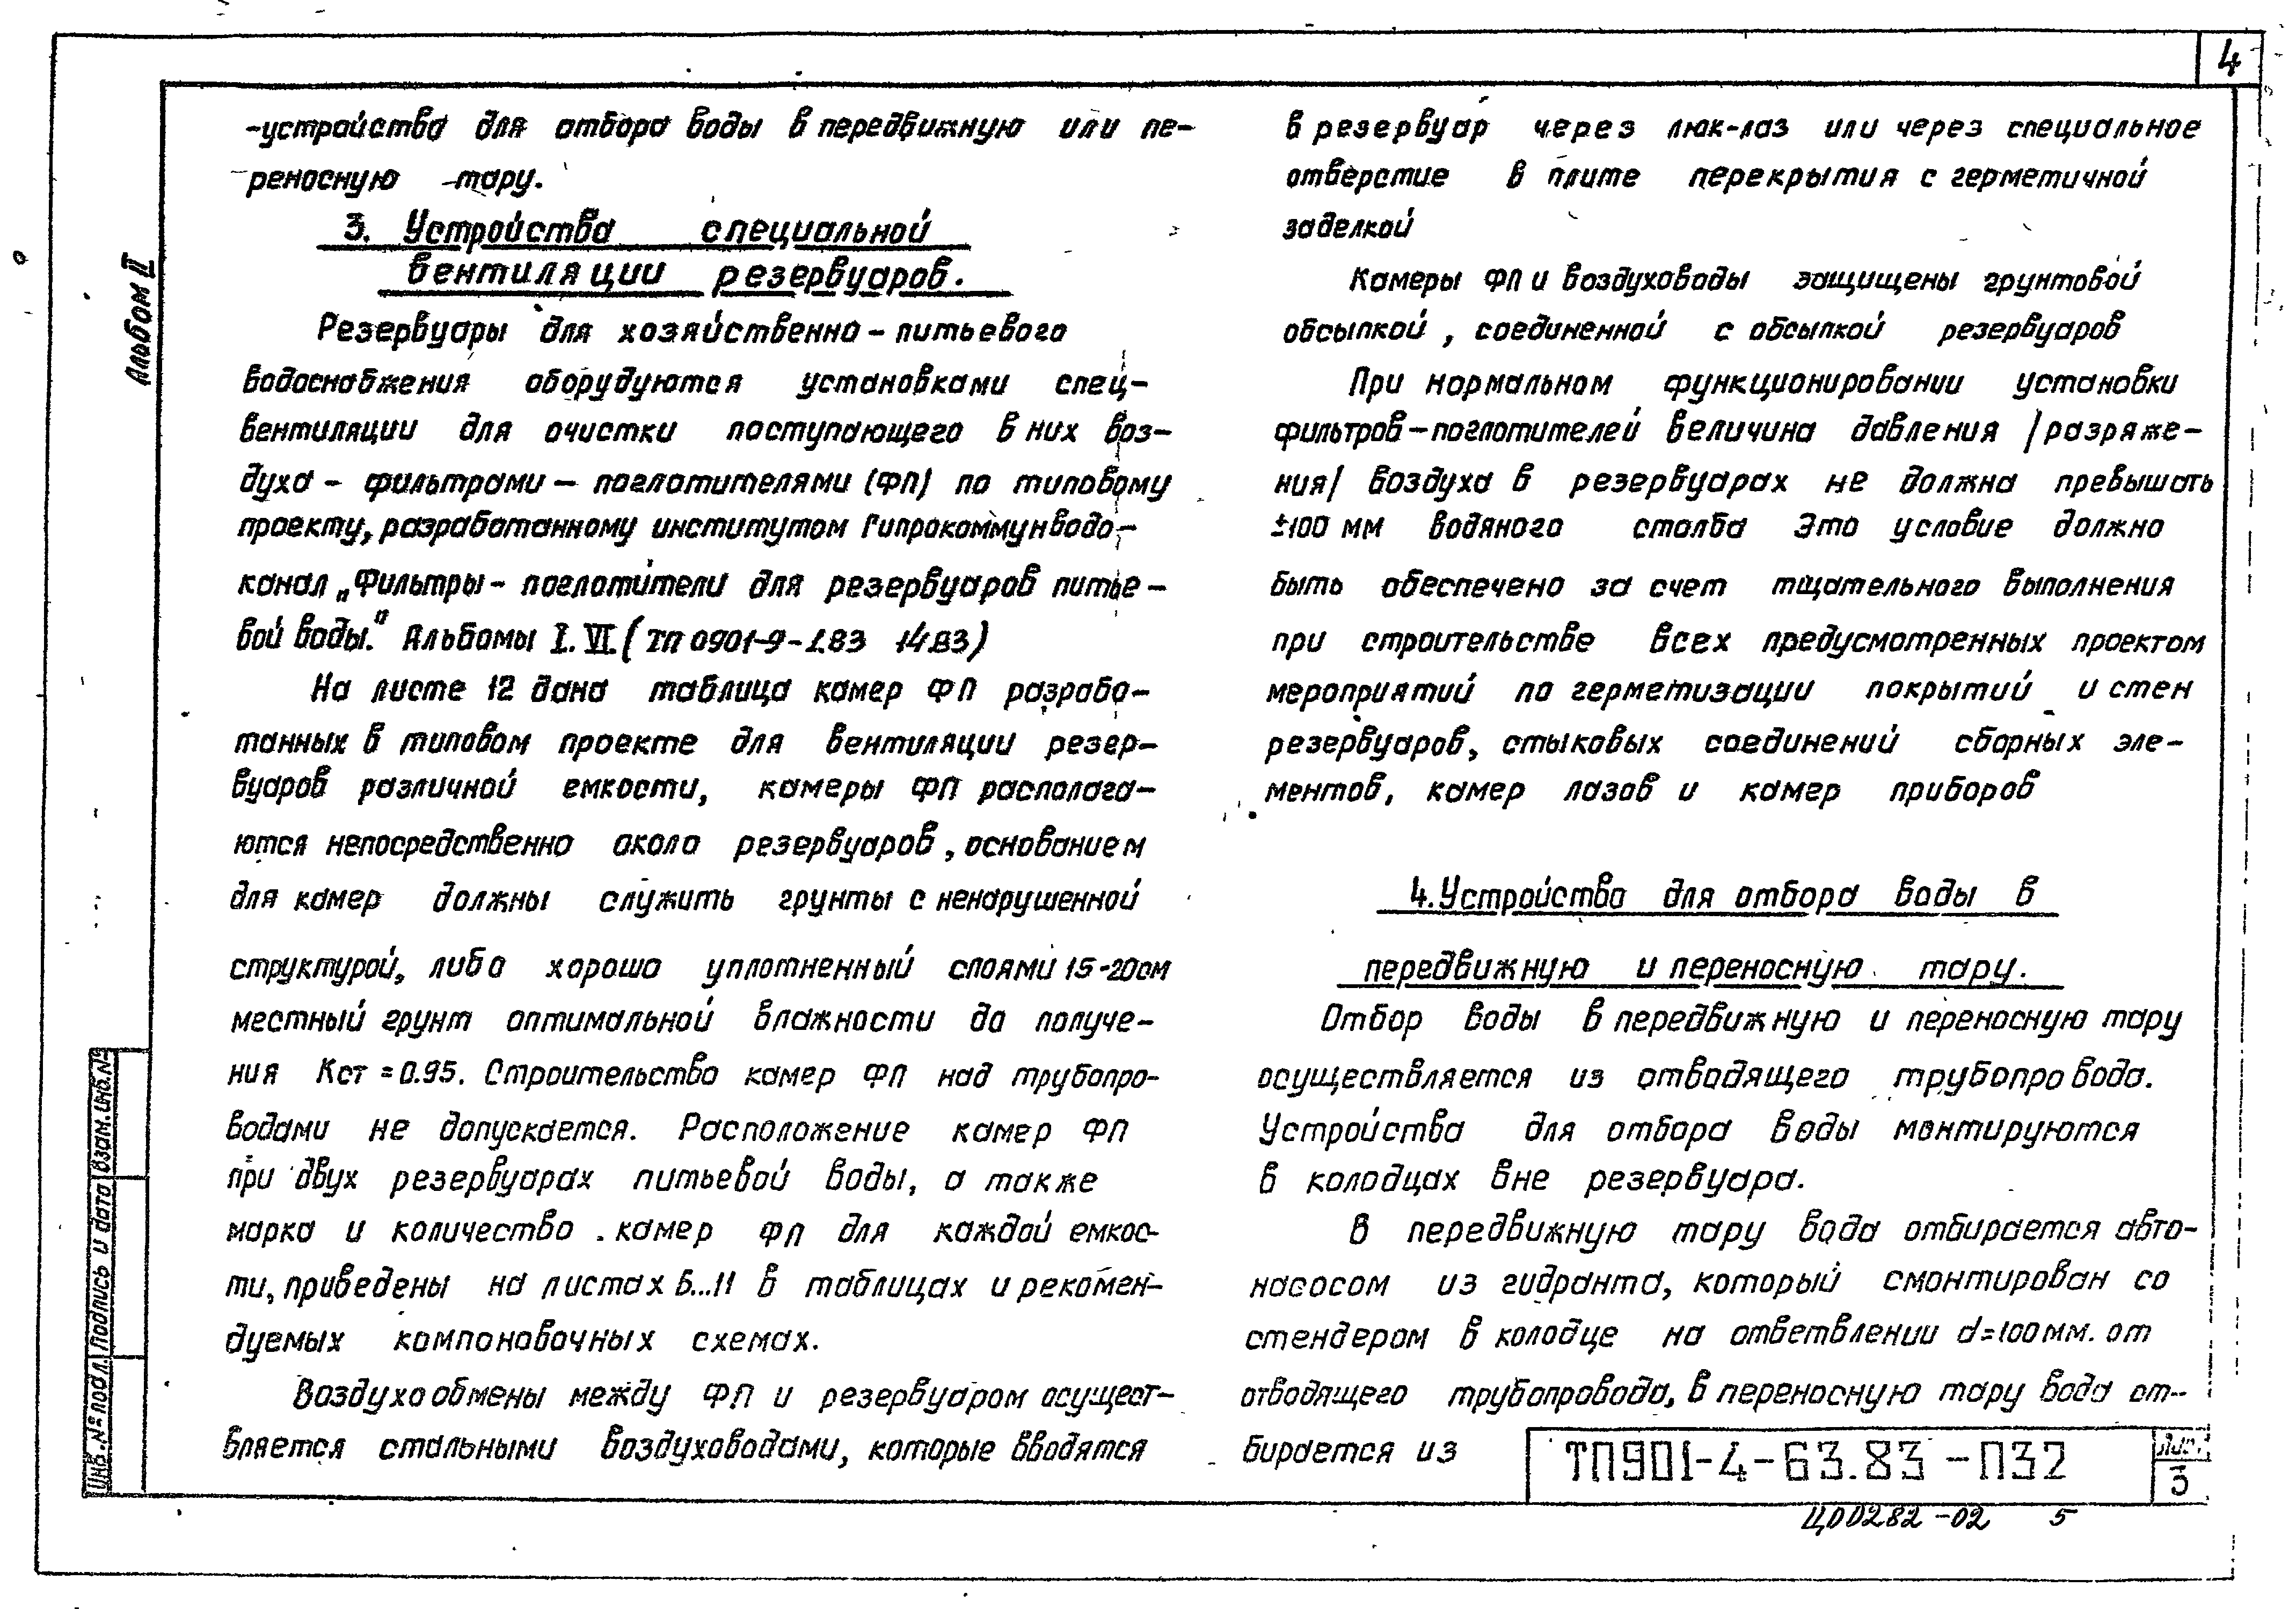 4
Альбом II
-устройства для отбора воды в передвижную или пе-
реносную тару.
3. Устройства специальной
вентиляции резервуаров.
Резервуары для хозяйственно-питьевого
водоснабжения оборудуются установками спец-
вентиляции для очистки поступающего в них воз-
духа - фильтрами - поглотителями (ФП) по типовому
проекту, разработанному институтом Гипрокоммунводо-
канал „Фильтры-поглотители для резервуаров питье-
вой воды." Альбомы I. VI. (ТП 0901-9-1.83 14.83)
На листе 12 дана таблица камер ФП разрабо-
танных в типовом проекте для вентиляции резер-
вуаров различной емкости, камеры ФП располага-
ются непосредственно около резервуаров, основанием
для камер должны служить грунты с ненарушенной
структурой, либо хорошо уплотненный слоями 15-20см
местный грунт оптимальной влажности до получе-
ния Кст = 0.95. Строительство камер ФП над трубопро-
водами не допускается. Расположение камер ФП
при двух резервуарах питьевой воды, а также
марка и количество камер ФП для каждой емкос-
ти, приведены на листах 6...11 в таблицах и рекомен-
дуемых компоновочных схемах.
Воздухообмены между ФП и резервуаром осущест-
вляется стальными воздуховодами, которые вводятся
в резервуар через люк-лаз или через специальное
отверстие в плите перекрытия с герметичной
заделкой
Камеры ФП и воздуховоды защищены грунтовой
обсыпкой, соединенной с обсыпкой резервуаров
При нормальном функционировании установки
фильтров-поглотителей величина давления /разряже-
ния/ воздуха в резервуарах не должна превышать
±100 мм водяного столба Это условие должно
быть обеспечено за счет тщательного выполнения
при строительстве всех предусмотренных проектом
мероприятий по герметизации покрытий и стен
резервуаров, стыковых соединений сборных эле-
ментов, камер лазов и камер приборов
4. Устройства для отбора воды в
передвижную и переносную тару.
Отбор воды в передвижную и переносную тару
осуществляется из отводящего трубопровода.
Устройства для отбора воды монтируются
в колодцах вне резервуара.
В передвижную тару вода отбирается авто-
насосом из гидранта, который смонтирован со
стендером в колодце на ответвлении d=100мм. от
отводящего трубопровода, в переносную тару вода от-
бирается из
Инв.№подл. Подпись и дата Взам.инв.№
ТП901-4-63.83 -ПЗ2
Лист
3
Ц00282-02 5